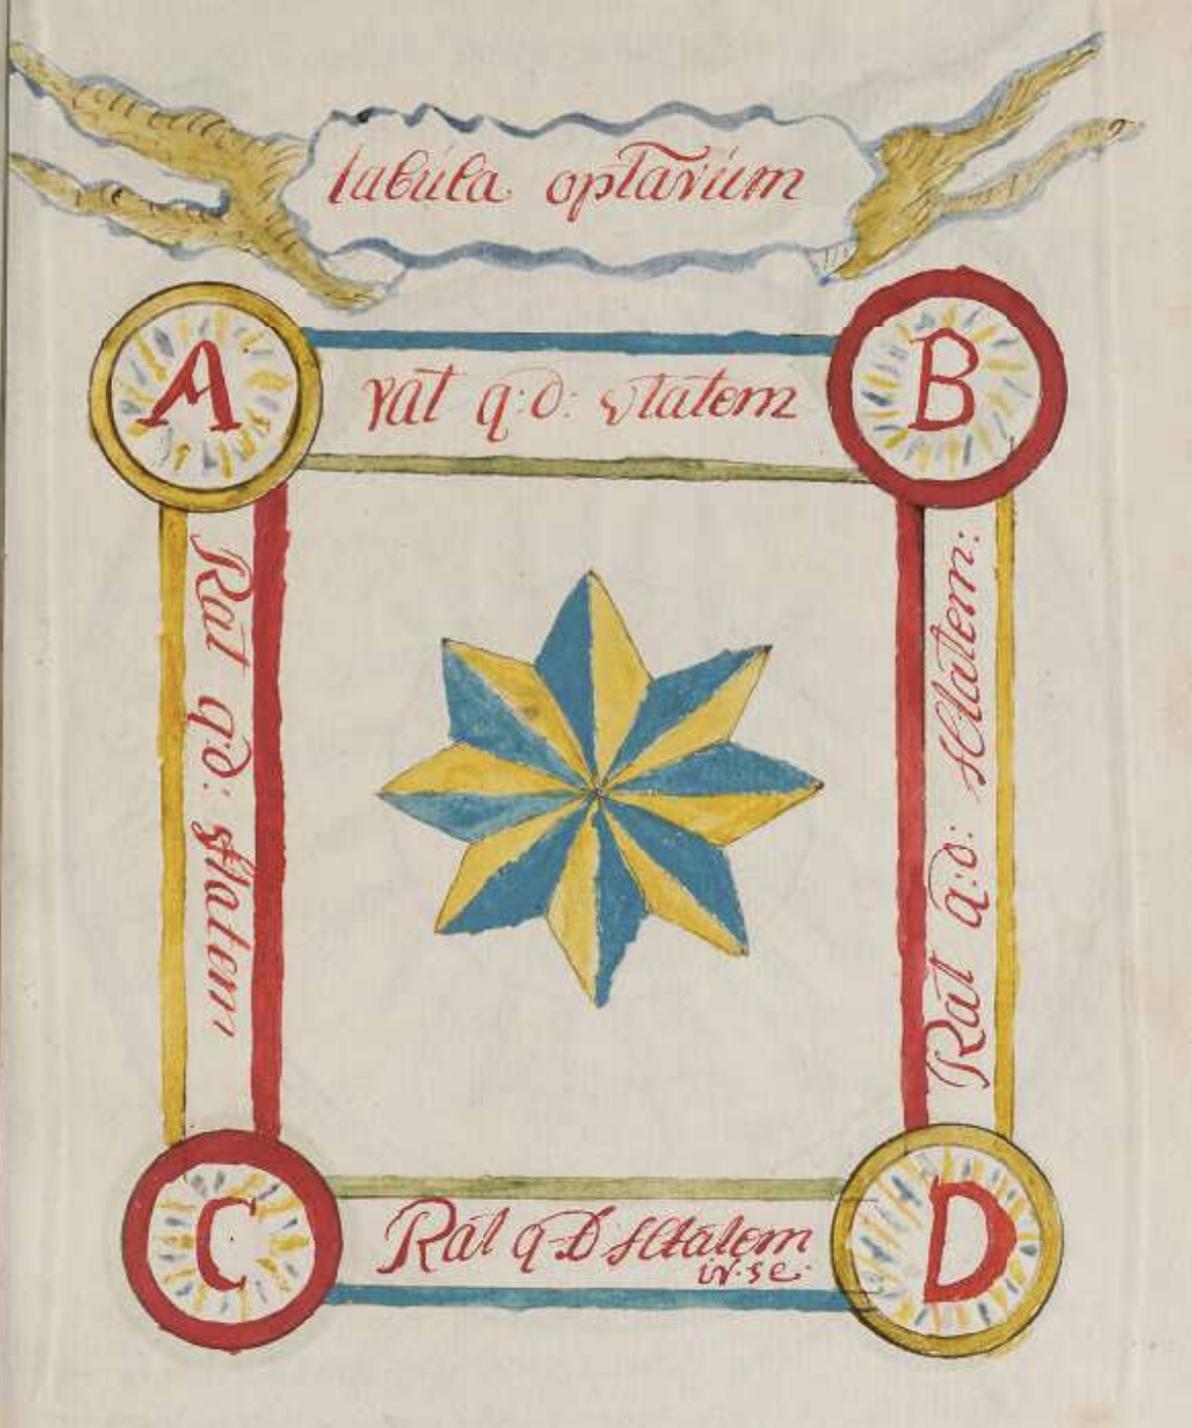 tabula optarium
A
B
rat q:d: vtatem
Rat qd: sltatem
Rat q:d: sltatem:
C
D
Rat q D sltatem
in se.